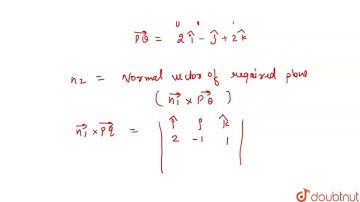 PQ→ = 2î - ĵ + 2k̂
n₂ = Normal vector of required plane
( n₁→ × PQ→ )
n₁→ × PQ→ = | î ĵ k̂
2 -1 1 |
doubtnut